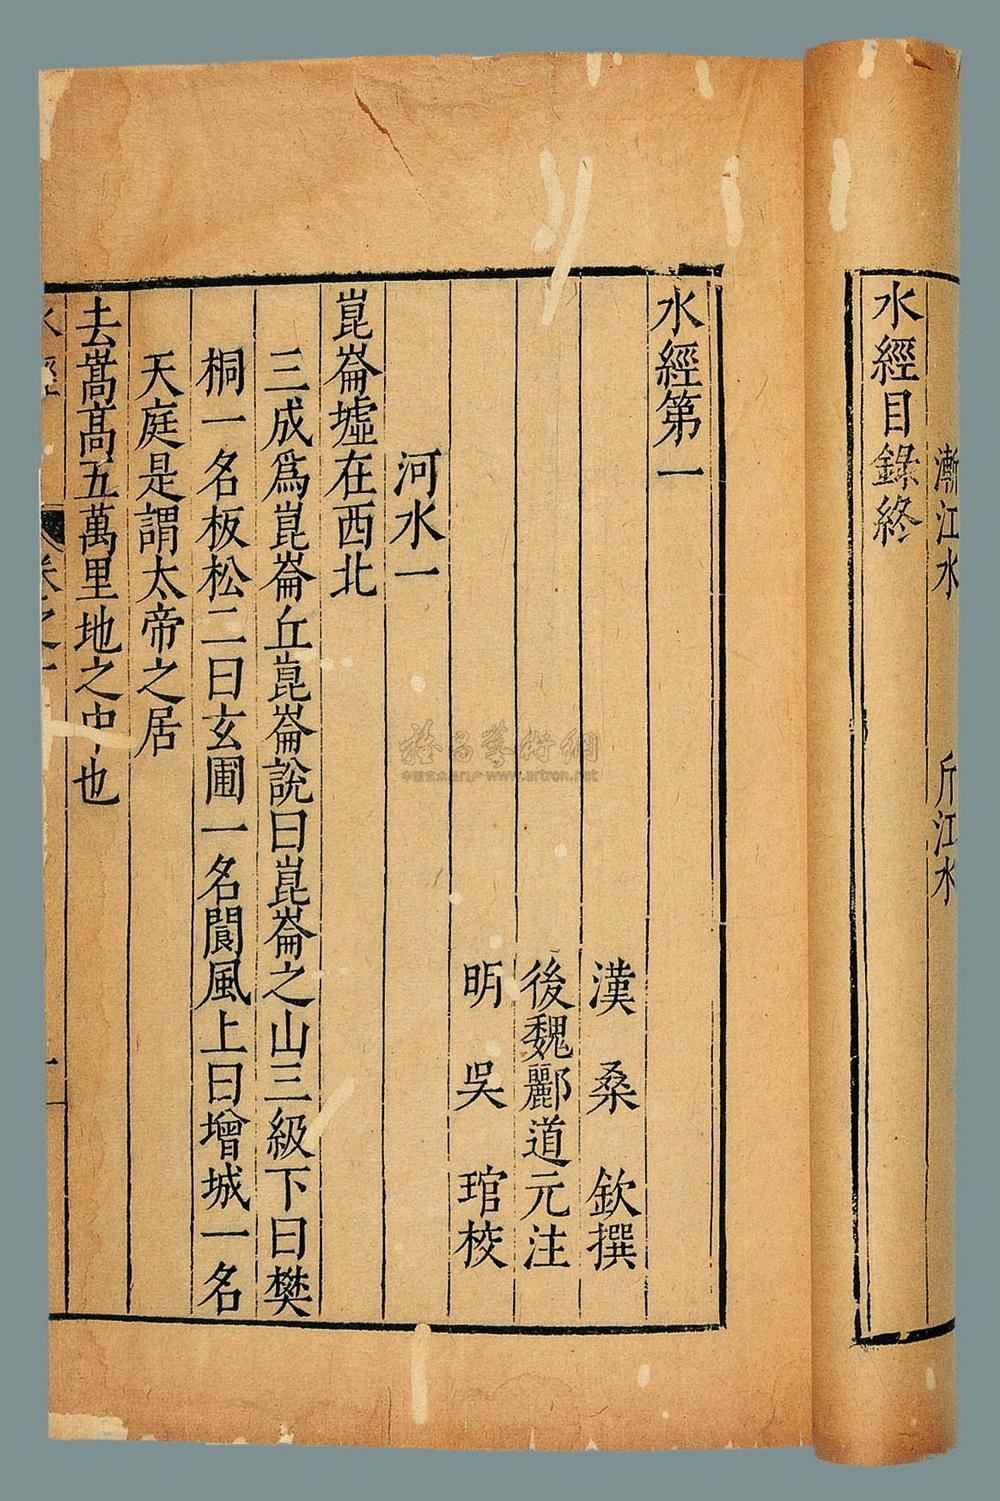 漸江水 斤江水
水經目録終
水經第一
漢 桑 欽撰
後魏酈道元注
明 吳 琯校
河水一
崑崙墟在西北
三成爲崑崙丘崑崙說曰崑崙之山三級下曰樊
桐一名板松二曰玄圃一名閬風上曰增城一名
天庭是謂太帝之居
去嵩高五萬里地之中也
水經 卷之一 一
雅昌藝術網
中国艺术品门户 www.artron.net